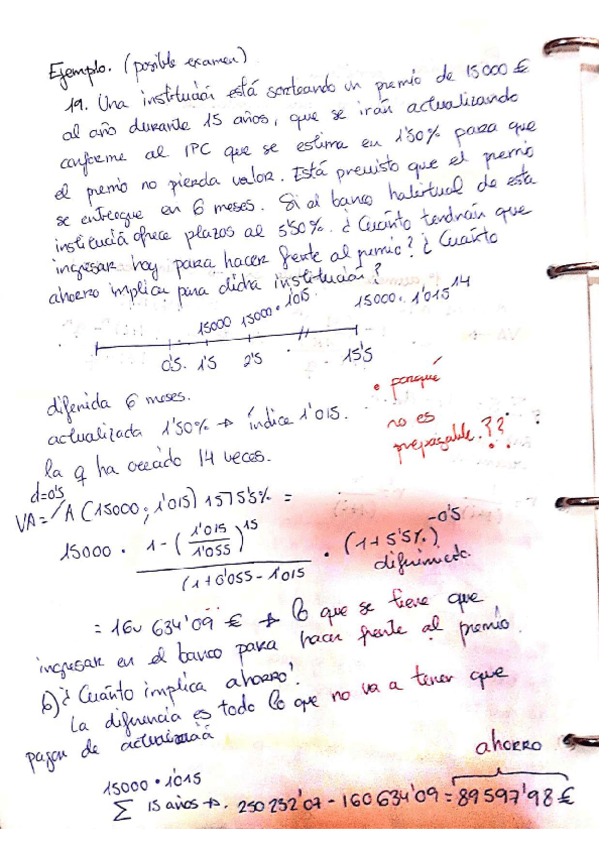 Ejemplo. (posible examen)
19. Una institución está sorteando un premio de 15000 €
al año durante 15 años, que se irán actualizando
conforme al IPC que se estima en 1'50% para que
el premio no pierda valor. Está previsto que el premio
se entregue en 6 meses. Si el banco habitual de esta
institución ofrece plazos al 5'50%. ¿Cuánto tendrán que
ingresar hoy para hacer frente al premio? ¿Cuánto
ahorro implica para dicha institución?
15000 15000·1'015 15000·1'015^14
0'5 1'5 2'5 15'5
diferida 6 meses.
actualizada 1'50% → índice 1'015.
la q ha crecido 14 veces.
• porqué
no es
prepagable.??
d=0'5
VA = /A (15000; 1'015) 15 5'5% =
15000 · 1 - (1'015/1'055)^15 / (1+0'055-1'015 · (1+5'5%)^-0'5
diferimiento.
= 160 634'09 € → lo que se tiene que
ingresar en el banco para hacer frente al premio.
b) ¿Cuánto implica ahorro?
La diferencia es todo lo que no va a tener que
pagar de actualización
ahorro
15000 · 1'015
∑ 15 años → 250 232'07 - 160 634'09 = 89 597'98 €